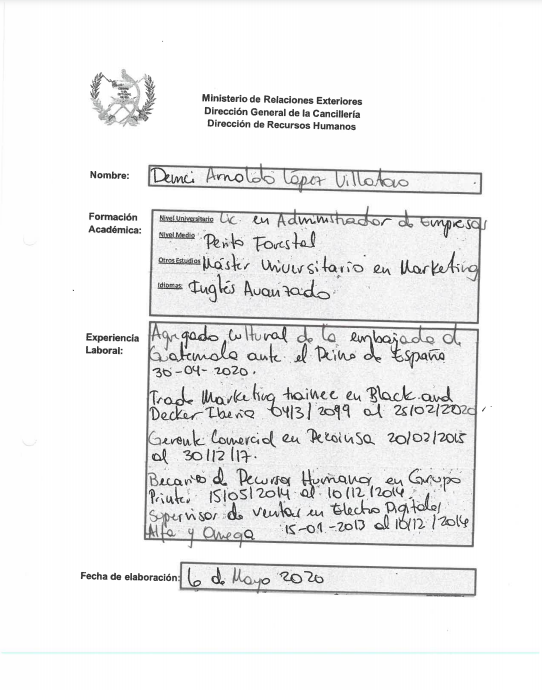 Ministerio de Relaciones Exteriores
Dirección General de la Cancillería
Dirección de Recursos Humanos
Nombre: Deinci Arnoldo López Villatoro
Formación Académica:
Nivel Universitario Lic. en Administrador de Empresas
Nivel Medio Perito Forestal
Otros Estudios Máster Universitario en Marketing
Idiomas: Inglés Avanzado
Experiencia Laboral:
Agregado cultural de la embajada de
Guatemala ante el Reino de España
30-04-2020.
Trade Marketing trainee en Black and
Decker Iberia 04/3/2099 al 28/02/2020.
Gerente Comercial en 20/02/2015
al 30/12/17.
Becario de Recursos Humanos en Grupo
Printer 15/05/2014 al 10/12/2014
Supervisor de ventas en Electro Digitales
Alfa y Omega 15-01-2013 al 10/12/2014
Fecha de elaboración: 6 de Mayo 2020